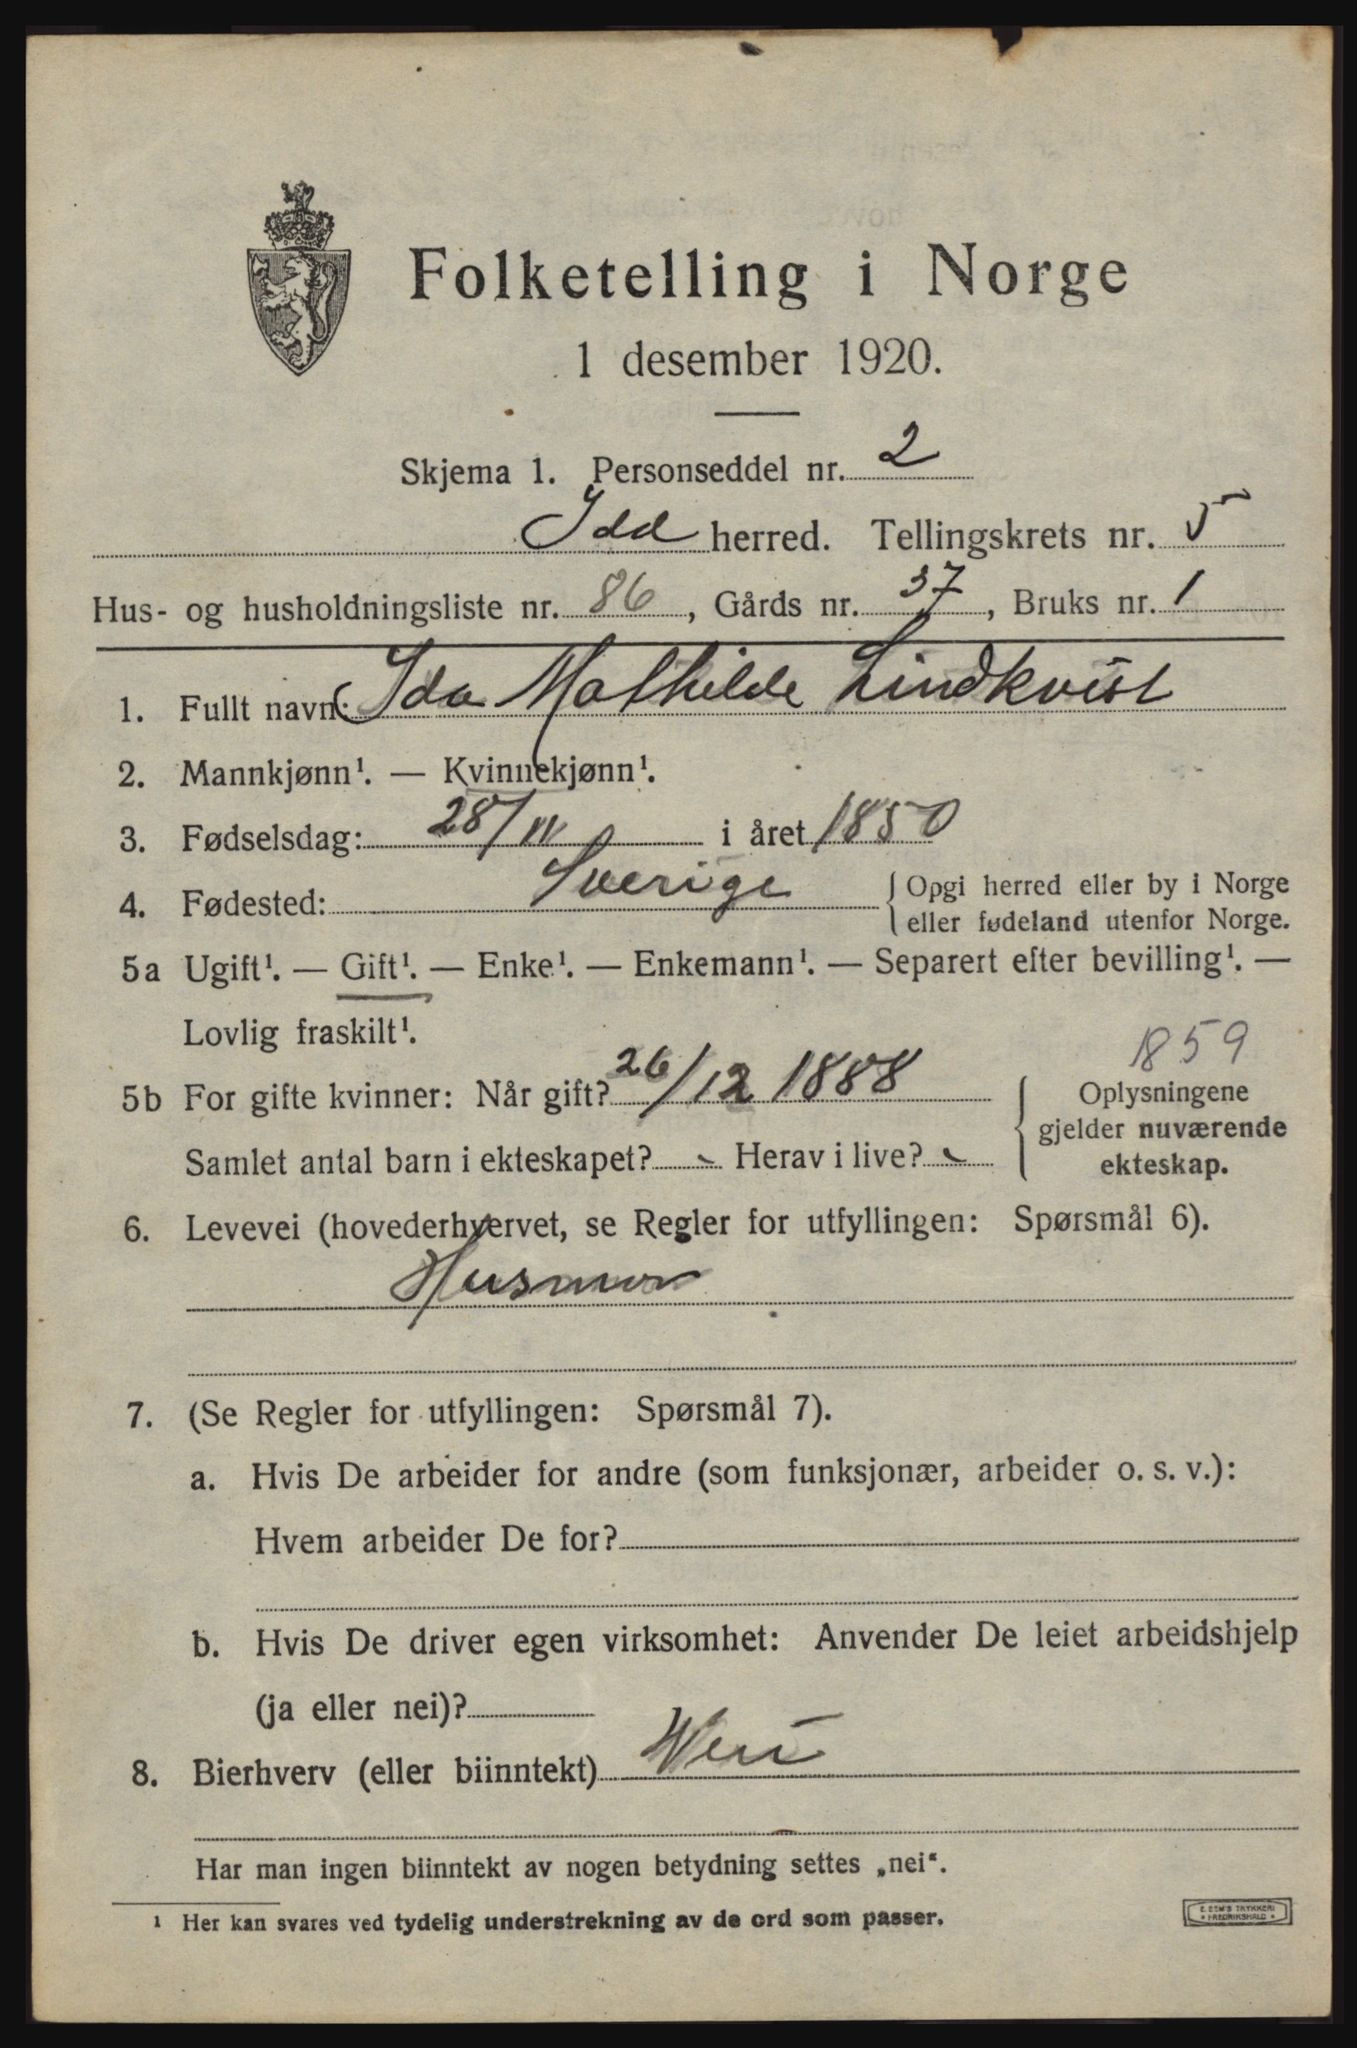 Folketelling i Norge
1 desember 1920.
Skjema 1. Personseddel nr. 2
Idd herred. Tellingskrets nr. 5
Hus- og husholdningsliste nr. 86, Gårds nr. 37, Bruks nr. 1
1. Fullt navn: Ida Mathilde Lindkvist
2. Mannkjønn¹. — Kvinnekjønn¹.
3. Fødselsdag: 28/11 i året 1850
4. Fødested: Sverige {Opgi herred eller by i Norge
eller fødeland utenfor Norge.
5a Ugift¹. — Gift¹. — Enke¹. — Enkemann¹. — Separert efter bevilling¹. —
Lovlig fraskilt¹.
1859
5b For gifte kvinner: Når gift? 26/12 1888 {Oplysningene
gjelder nuværende
ekteskap.
Samlet antal barn i ekteskapet? - Herav i live? -
6. Levevei (hovederhvervet, se Regler for utfyllingen: Spørsmål 6).
Husmor
7. (Se Regler for utfyllingen: Spørsmål 7).
a. Hvis De arbeider for andre (som funksjonær, arbeider o. s. v.):
Hvem arbeider De for?
b. Hvis De driver egen virksomhet: Anvender De leiet arbeidshjelp
(ja eller nei)?
8. Bierhverv (eller biinntekt) Nei
Har man ingen biinntekt av nogen betydning settes „nei“.
¹ Her kan svares ved tydelig understrekning av de ord som passer.
TRYKKERI
FREDRIKSHALD